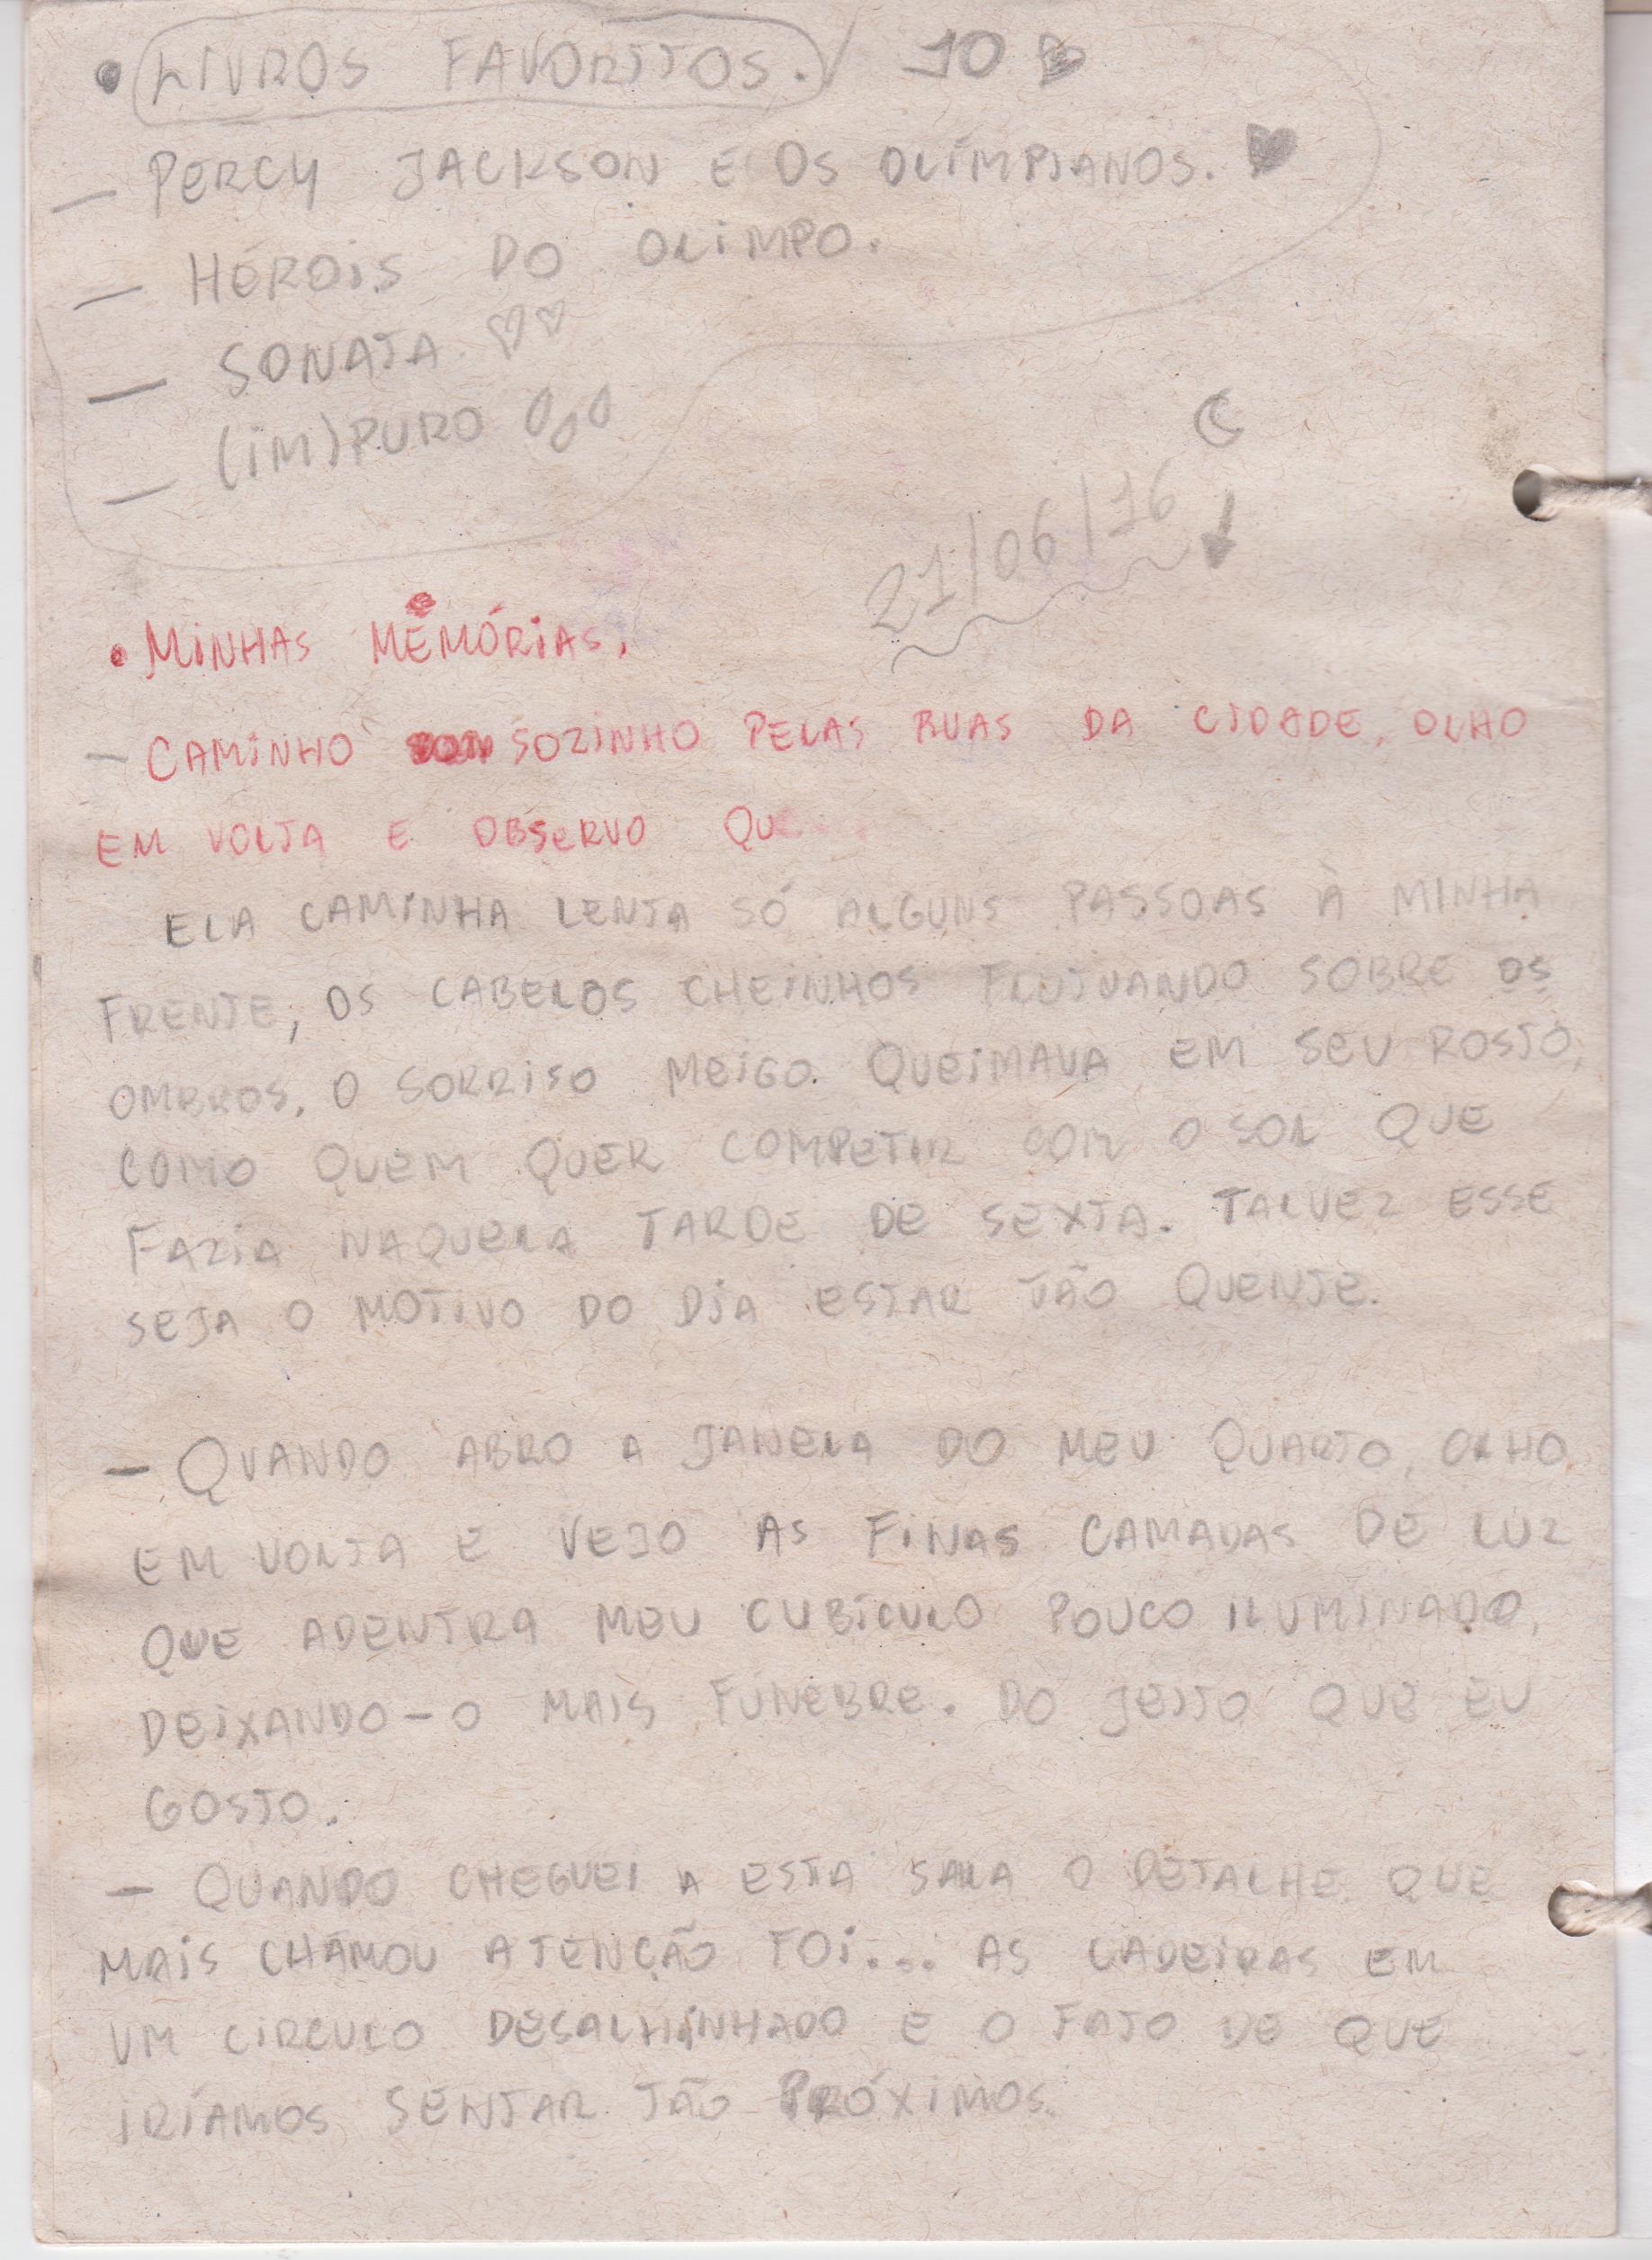 • LIVROS FAVORITOS. 10
— PERCY JACKSON E OS OLIMPIANOS.
— HERÓIS DO OLIMPO.
— SONATA
— (IM)PURO
21/06/16
• MINHAS MEMÓRIAS.
— CAMINHO SOZINHO PELAS RUAS DA CIDADE, OLHO
EM VOLTA E OBSERVO QU
ELA CAMINHA LENTA SÓ ALGUNS PASSOAS À MINHA
FRENTE, OS CABELOS CHEINHOS FLUTUANDO SOBRE OS
OMBROS. O SORRISO MEIGO QUEIMAVA EM SEU ROSTO,
COMO QUEM QUER COMPETIR COM O SOL QUE
FAZIA NAQUELA TARDE DE SEXTA. TALVEZ ESSE
SEJA O MOTIVO DO DIA ESTAR TÃO QUENTE.
— QUANDO ABRO A JANELA DO MEU QUARTO, OLHO
EM VOLTA E VEJO AS FINAS CAMADAS DE LUZ
QUE ADENTRA MEU CUBÍCULO POUCO ILUMINADO,
DEIXANDO-O MAIS FÚNEBRE. DO JEITO QUE EU
GOSTO.
— QUANDO CHEGUEI A ESTA SALA O DETALHE QUE
MAIS CHAMOU ATENÇÃO FOI... AS CADEIRAS EM
UM CIRCULO DESALHINHADO E O FATO DE QUE
IRÍAMOS SENTAR TÃO PRÓXIMOS.